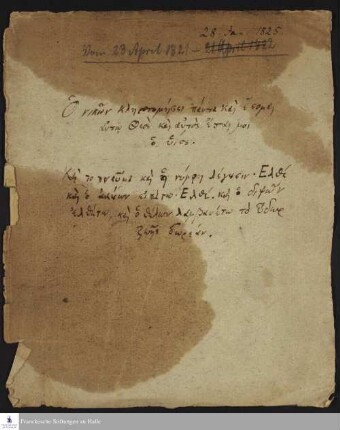 28. Jan. 1825.
Vom 23 April 1821 –
Ὁ νικῶν κληρονομήσει πάντα καὶ ἔσομαι
αὐτῷ Θεὸς καὶ αὐτὸς ἔσται μοι
ὁ υἱος.
Καὶ το πνεῦμα καὶ ἡ νύμφη λέγουσιν· Ἐλθέ
καὶ ὁ ἀκούων εἰπάτω· Ἐλθέ, καὶ ὁ διψῶν
ἐλθέτω, καὶ ὁ θέλων λαμβανέτω τὸ ὕδωρ
ζωῆς δωρεάν.
Franckesche Stiftungen zu Halle